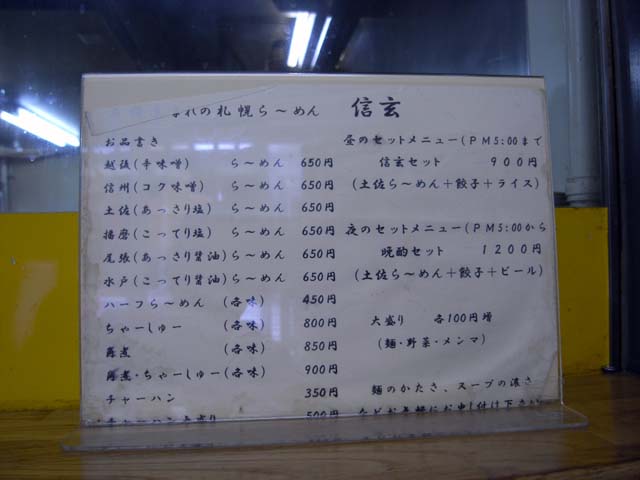 れの札幌ら〜めん 信玄
お品書き
越後(辛味噌) ら〜めん 650円
信州(コク味噌) ら〜めん 650円
土佐(あっさり塩) ら〜めん 650円
播磨(こってり塩) ら〜めん 650円
尾張(あっさり醤油) ら〜めん 650円
水戸(こってり醤油) ら〜めん 650円
ハーフら〜めん (各味) 450円
ちゃーしゅー (各味) 800円
角煮 (各味) 850円
角煮・ちゃーしゅー(各味) 900円
チャーハン 350円
チャーハン大盛り 500円
昼のセットメニュー(PM5:00まで
信玄セット 900円
(土佐ら〜めん+餃子+ライス)
夜のセットメニュー(PM5:00から
晩酌セット 1200円
(土佐ら〜めん+餃子+ビール)
大盛り 各100円増
(麺・野菜・メンマ)
麺のかたさ、スープの濃さ
などお気軽にお申し付け下さい